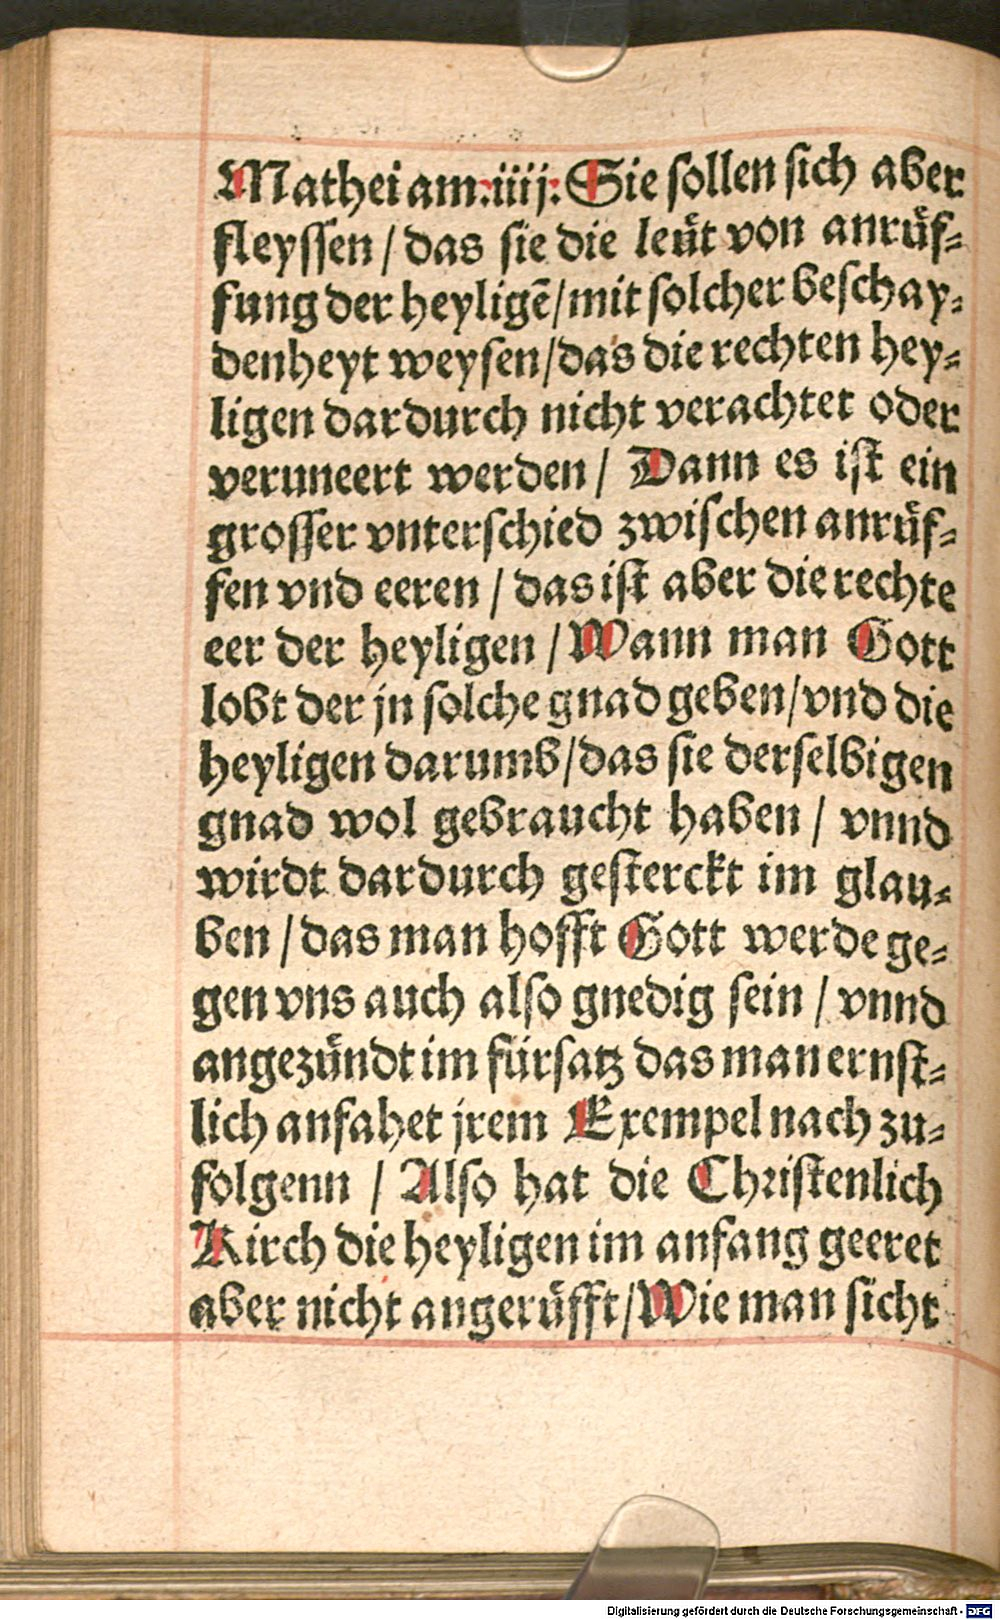 Mathei am .iiij. Sie sollen sich aber
fleyssen / das sie die leüt von anrüf⸗
fung der heyligē/mit solcher beschay⸗
denheyt weysen/das die rechten hey⸗
ligen dardurch nicht verachtet oder
veruneert werden / Dann es ist ein
grosser vnterschied zwischen anrüf⸗
fen vnd eeren / das ist aber die rechte
eer der heyligen / Wann man Gott
lobt der jn solche gnad geben/vnd die
heyligen darumb/das sie derselbigen
gnad wol gebraucht haben / vnnd
wirdt dardurch gesterckt im glau⸗
ben / das man hofft Gott werde ge⸗
gen vns auch also gnedig sein / vnnd
angezündt im fürsatz das man ernst⸗
lich anfahet jrem Exempel nach zu⸗
folgenn / Also hat die Christenlich
Kirch die heyligen im anfang geeret
aber nicht angerüfft/Wie man sicht
Digitalisierung gefördert durch die Deutsche Forschungsgemeinschaft - DFG